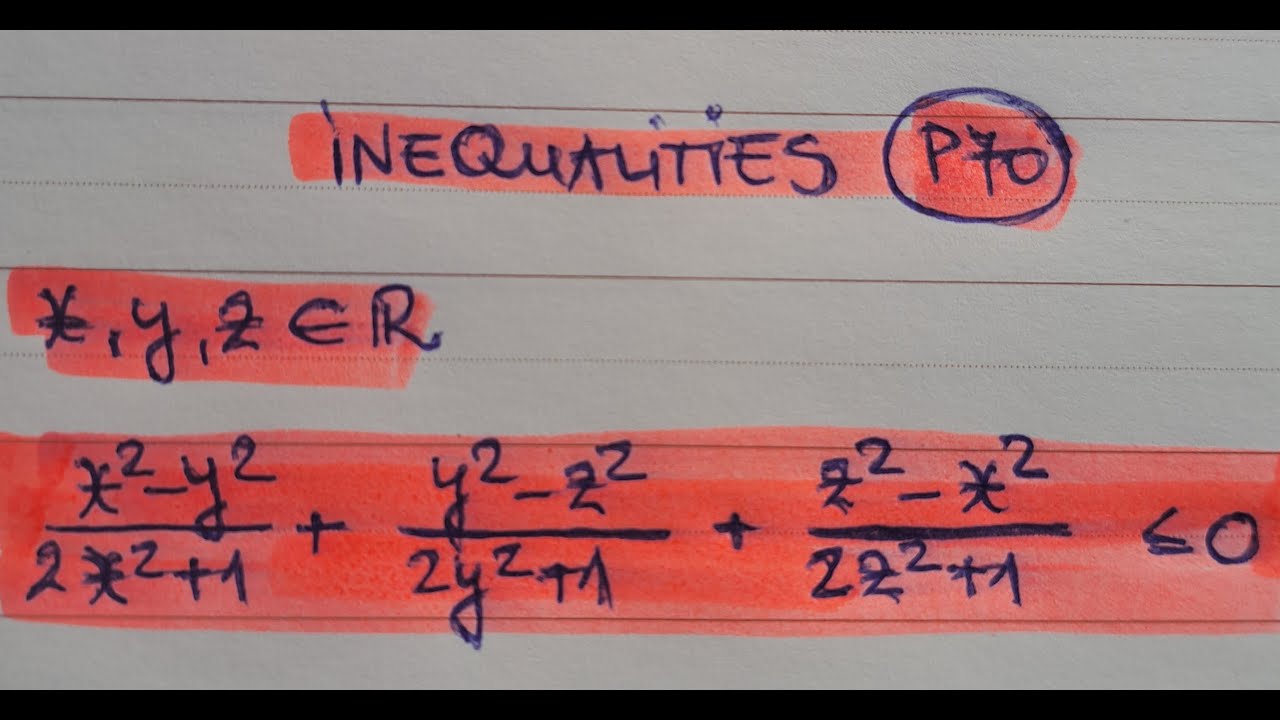 INEQUALITIES P70
x, y, z ∈ ℝ
(x² - y²)/(2x² + 1) + (y² - z²)/(2y² + 1) + (z² - x²)/(2z² + 1) ≤ 0